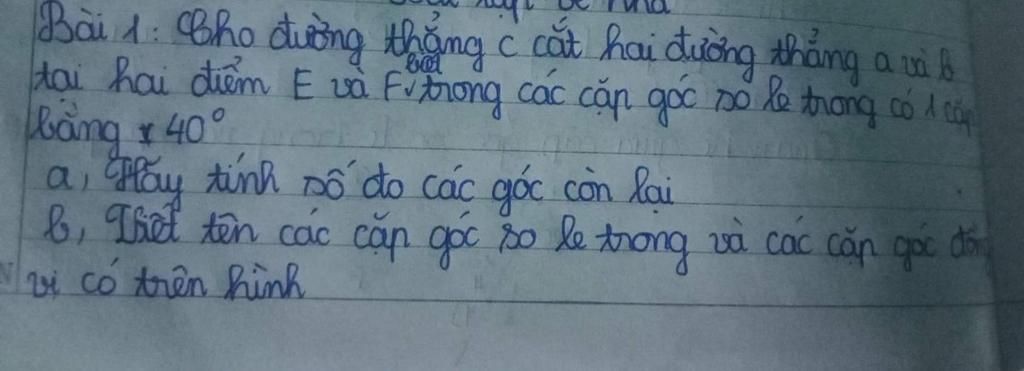 Bài 1: Cho đường thẳng c cắt hai đường thẳng a và b
tại hai điểm E và F, biết trong các cặp góc so le trong có 1 cặp
bằng 40°
a, Hãy tính số đo các góc còn lại
b, Viết tên các cặp góc so le trong và các cặp góc đồng
vị có trên hình